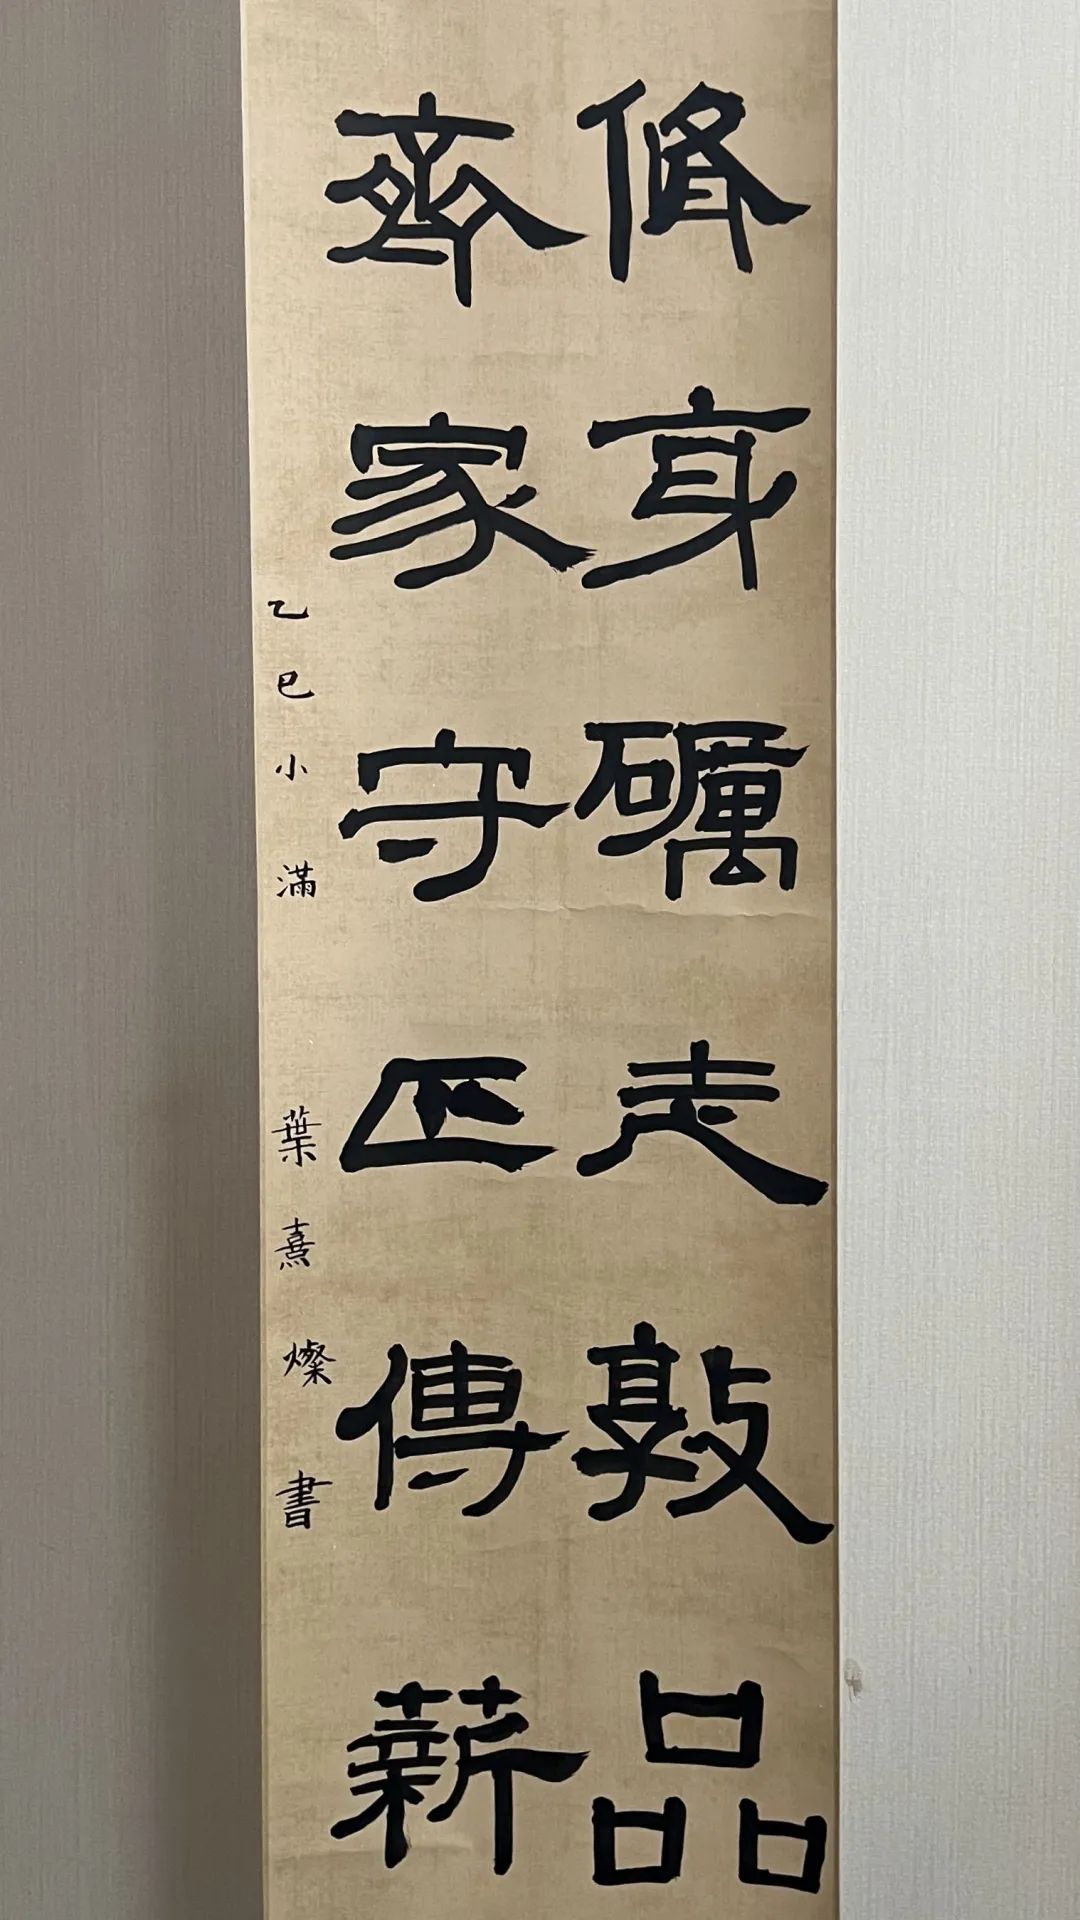 脩身礪走敦品
齊家守正傳薪
乙巳小滿 葉熹燦書